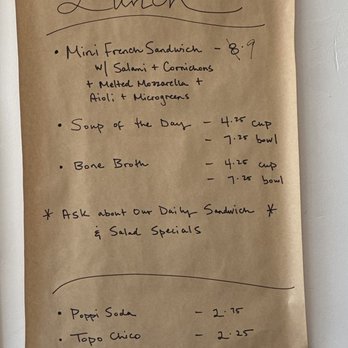 Lunch
• Mini French Sandwich - 8.9
w/ Salami + Cornichons
+ Melted Mozzarella +
Aioli + Microgreens
• Soup of the Day - 4.25 cup
- 7.25 bowl
• Bone Broth - 4.25 cup
- 7.25 bowl
* Ask about Our Daily Sandwich *
& Salad Specials
• Poppi Soda - 2.75
• Topo Chico - 2.25